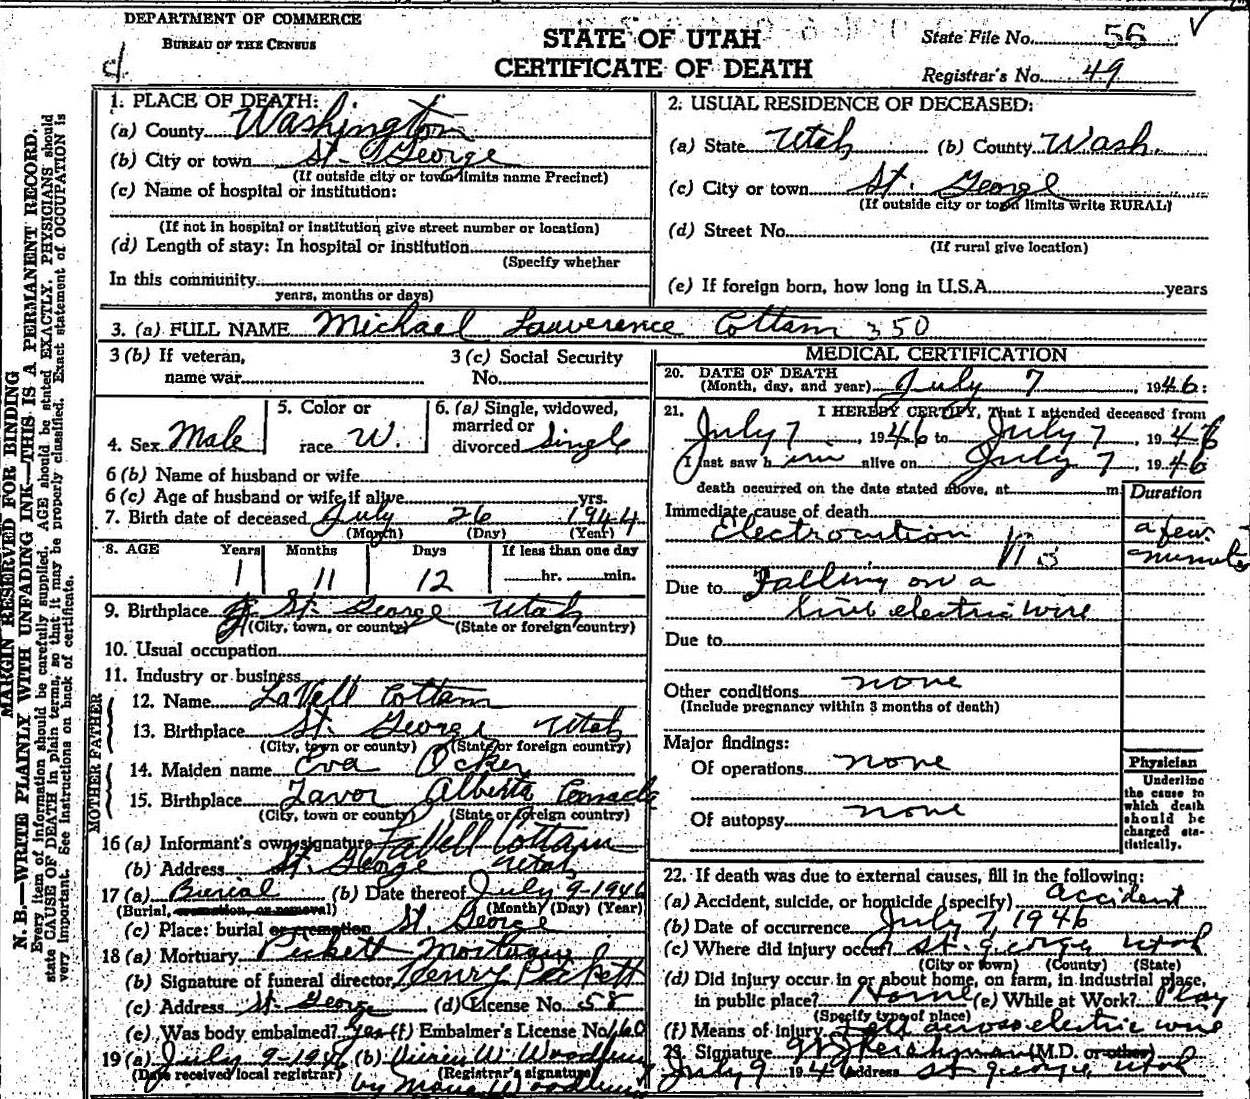 DEPARTMENT OF COMMERCE
BUREAU OF THE CENSUS
STATE OF UTAH
CERTIFICATE OF DEATH
State File No. 56
Registrar's No. 49
MARGIN RESERVED FOR BINDING
N. B.—WRITE PLAINLY WITH UNFADING INK—THIS IS A PERMANENT RECORD.
Every item of information should be carefully supplied. AGE should be stated EXACTLY. PHYSICIANS should
state CAUSE OF DEATH in plain terms, so that it may be properly classified. Exact statement of OCCUPATION is
very important. See instructions on back of certificate.
1. PLACE OF DEATH:
(a) County Washington
(b) City or town St. George
(If outside city or town limits name Precinct)
(c) Name of hospital or institution:
(If not in hospital or institution give street number or location)
(d) Length of stay: In hospital or institution
(Specify whether
In this community
years, months or days)
2. USUAL RESIDENCE OF DECEASED:
(a) State Utah (b) County Wash.
(c) City or town St. George
(If outside city or town limits write RURAL)
(d) Street No.
(If rural give location)
(e) If foreign born, how long in U.S.A. years
3. (a) FULL NAME Michael Lawerence Cottam 350
3 (b) If veteran,
name war
3 (c) Social Security
No.
4. Sex Male
5. Color or
race W.
6. (a) Single, widowed,
married or
divorced Single
6 (b) Name of husband or wife
6 (c) Age of husband or wife, if alive yrs.
7. Birth date of deceased July 26 1944
(Month) (Day) (Year)
8. AGE Years Months Days If less than one day
1 11 12 hr. min.
9. Birthplace St. George Utah
(City, town, or county) (State or foreign country)
10. Usual occupation
11. Industry or business
FATHER
12. Name LaVell Cottam
13. Birthplace St. George Utah
(City, town or county) (State or foreign country)
MOTHER
14. Maiden name Eva Ocker
15. Birthplace Alberta
(City, town or county) (State or foreign country)
16 (a) Informant's own signature LaVell Cottam
(b) Address St. George Utah
17 (a) Burial (b) Date thereof July 9-1946
(Burial, cremation, or removal) (Month) (Day) (Year)
(c) Place: burial or cremation St. George
18 (a) Mortuary Pickett Mortuary
(b) Signature of funeral director Henry Pickett
(c) Address St. George (d) License No. 58
(e) Was body embalmed? Yes (f) Embalmer's License No. 160
19 (a) July 9-1946 (b) W. Woodbury
(Date received local registrar) (Registrar's signature)
by Woodbury
MEDICAL CERTIFICATION
20. DATE OF DEATH
(Month, day, and year) July 7, 1946:
21. I HEREBY CERTIFY, That I attended deceased from
July 7, 1946 to July 7, 1946
I last saw him alive on July 7, 1946
death occurred on the date stated above, at m
Duration
Immediate cause of death
Electrocution
a few
minutes
Due to Falling on a
live electric wire
Due to
Other conditions none
(Include pregnancy within 3 months of death)
Major findings:
Of operations none
Of autopsy none
Physician
Underline
the cause to
which death
should be
charged sta-
tistically.
22. If death was due to external causes, fill in the following:
(a) Accident, suicide, or homicide (specify) Accident
(b) Date of occurrence July 7, 1946
(c) Where did injury occur? St. George Utah
(City or town) (County) (State)
(d) Did injury occur in or about home, on farm, in industrial place,
in public place? Home (e) While at Work? Play
(Specify type of place)
(f) Means of injury Fell across electric wire
23. Signature (M.D. or other)
July 9 1946 Address St. George, Utah